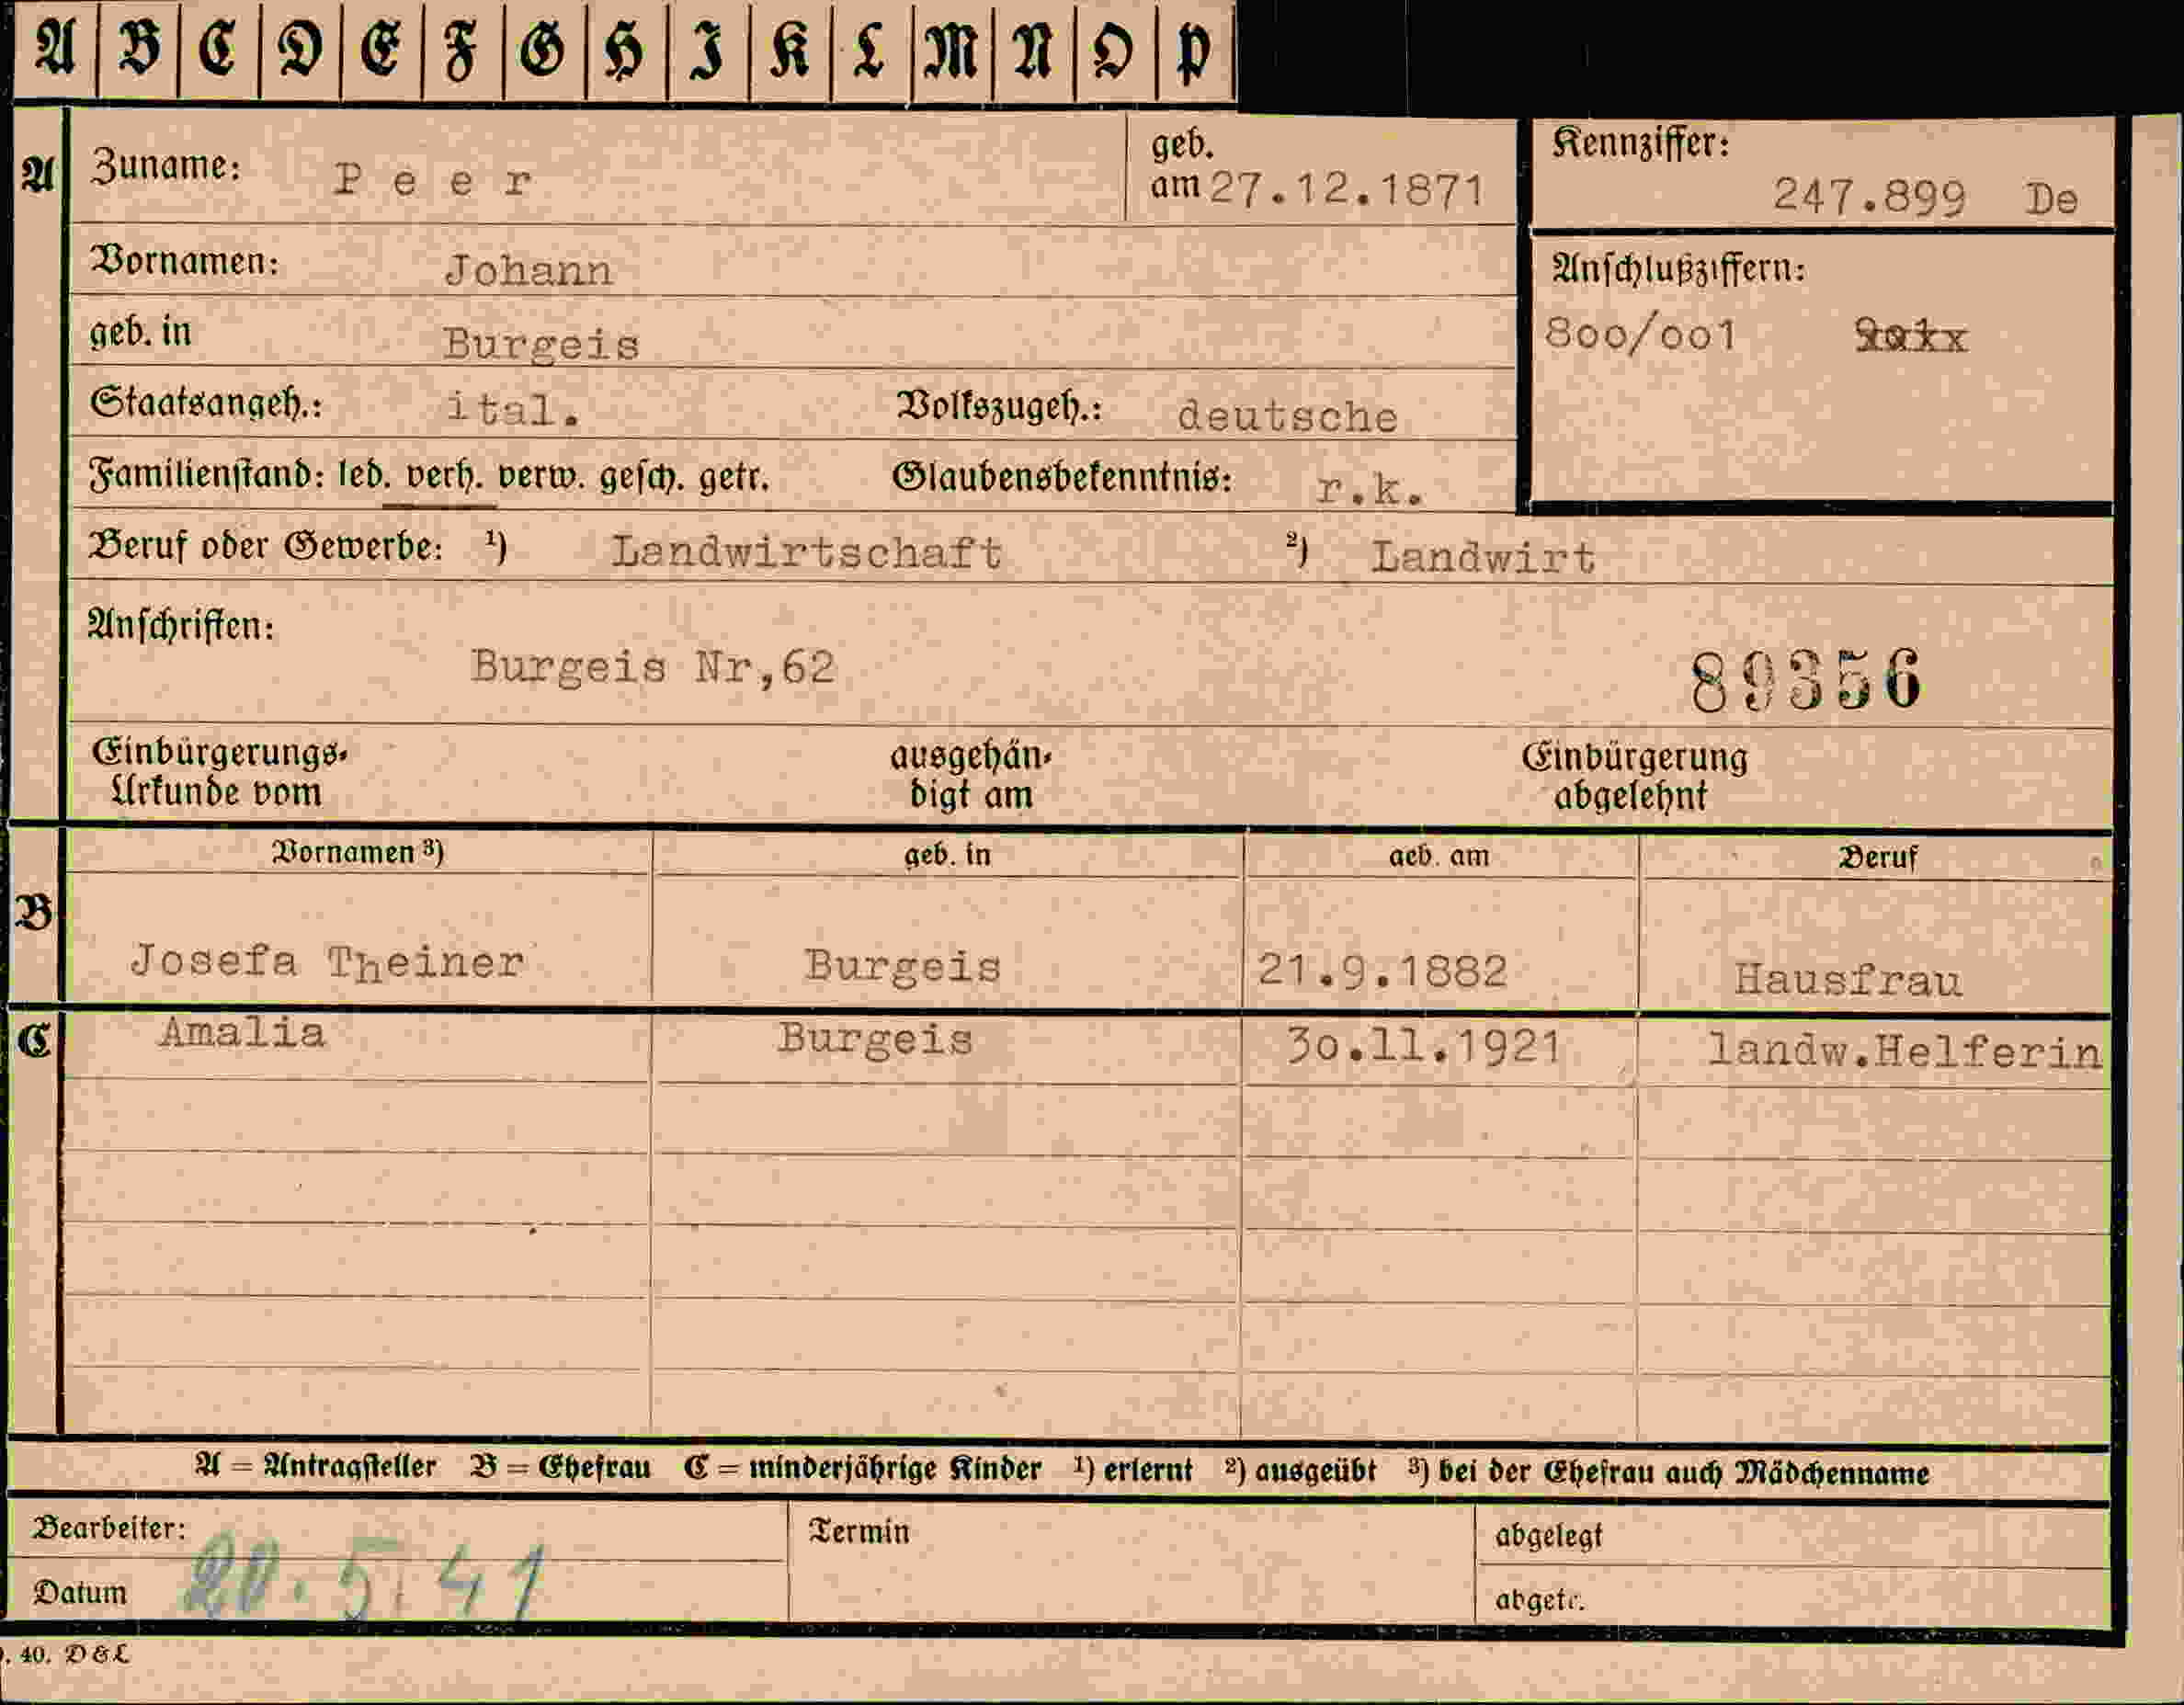 A B C D E F G H I K L M N O P
A Zuname: Peer geb. am 27.12.1871 Kennziffer: 247.899 De
Vornamen: Johann Anschlußziffern:
geb. in Burgeis 800/001
Staatsangeh.: ital. Volkszugeh.: deutsche
Familienstand: led. verh. verw. gesch. getr. Glaubensbekenntnis: r.k.
Beruf oder Gewerbe: ¹) Landwirtschaft ²) Landwirt
Anschriften:
Burgeis Nr,62 89356
Einbürgerungs- ausgehän- Einbürgerung
Urkunde vom digt am abgelehnt
Vornamen ³) geb. in geb. am Beruf
B
Josefa Theiner Burgeis 21.9.1882 Hausfrau
C Amalia Burgeis 30.11.1921 landw.Helferin
A = Antragsteller B = Ehefrau C = minderjährige Kinder ¹) erlernt ²) ausgeübt ³) bei der Ehefrau auch Mädchenname
Bearbeiter: Termin abgelegt
Datum 20.5.41 abgetr.
40. D&L